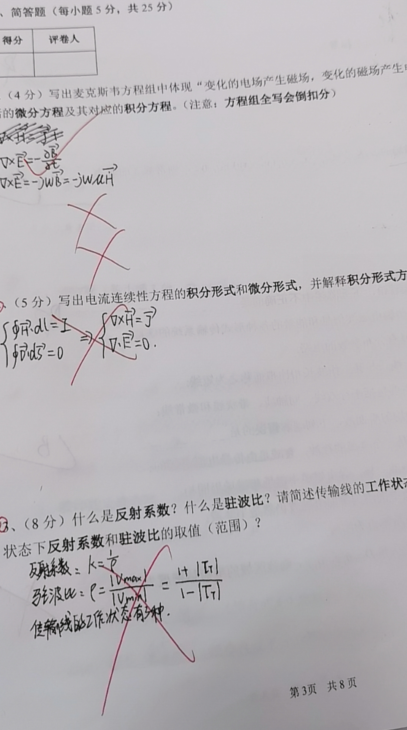 、简答题（每小题 5 分，共 25 分）
得分 评卷人
（4 分）写出麦克斯韦方程组中体现“变化的电场产生磁场，变化的磁场产生
的微分方程及其对应的积分方程。（注意：方程组全写会倒扣分）
∇×E⃗=-∂B⃗/∂t
∇×E⃗=-jwB⃗=-jwμH⃗
、（5 分）写出电流连续性方程的积分形式和微分形式，并解释积分形式方
{∮H⃗·dl=I ⇒ {∇×H⃗=J⃗
{∮D⃗·dS⃗=0 {∇·E⃗=0.
3、（8 分）什么是反射系数？什么是驻波比？请简述传输线的工作状态
状态下反射系数和驻波比的取值（范围）？
反射系数：K=1/ρ
驻波比：ρ=|Vmax|/|Vmin|=1+|Γτ|/1-|Γτ|
传输线的工作状态有3种.
第 3页 共 8 页